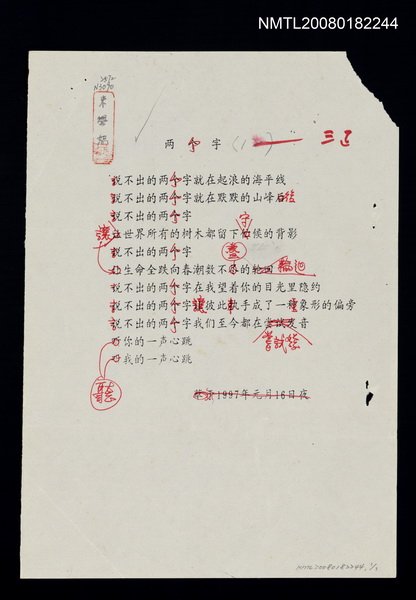 NMTL20080182244
两个字
说不出的两个字就在起浪的海平线
说不出的两个字就在默默的山峰后
说不出的两个字
让世界所有的树木都留下守候的背影
说不出的两个字
让生命全跌向春潮数不尽的轮回
说不出的两个字在我望着你的目光里隐约
说不出的两个字让彼此执手成了一种象形的偏旁
说不出的两个字我们至今都在尝试发音
听你的一声心跳
听我的一声心跳
1997年元月16日夜
聽
NMTL20080182244, 1/1